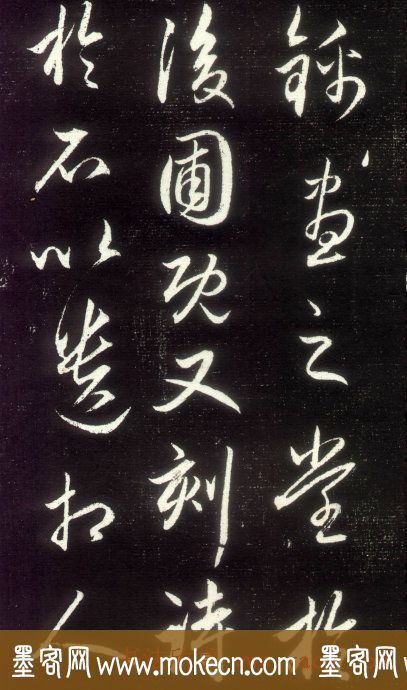 錦晝之堂於
後圃既又刻詩
於石以遺相人
墨客网 www.mokecn.com 墨客网